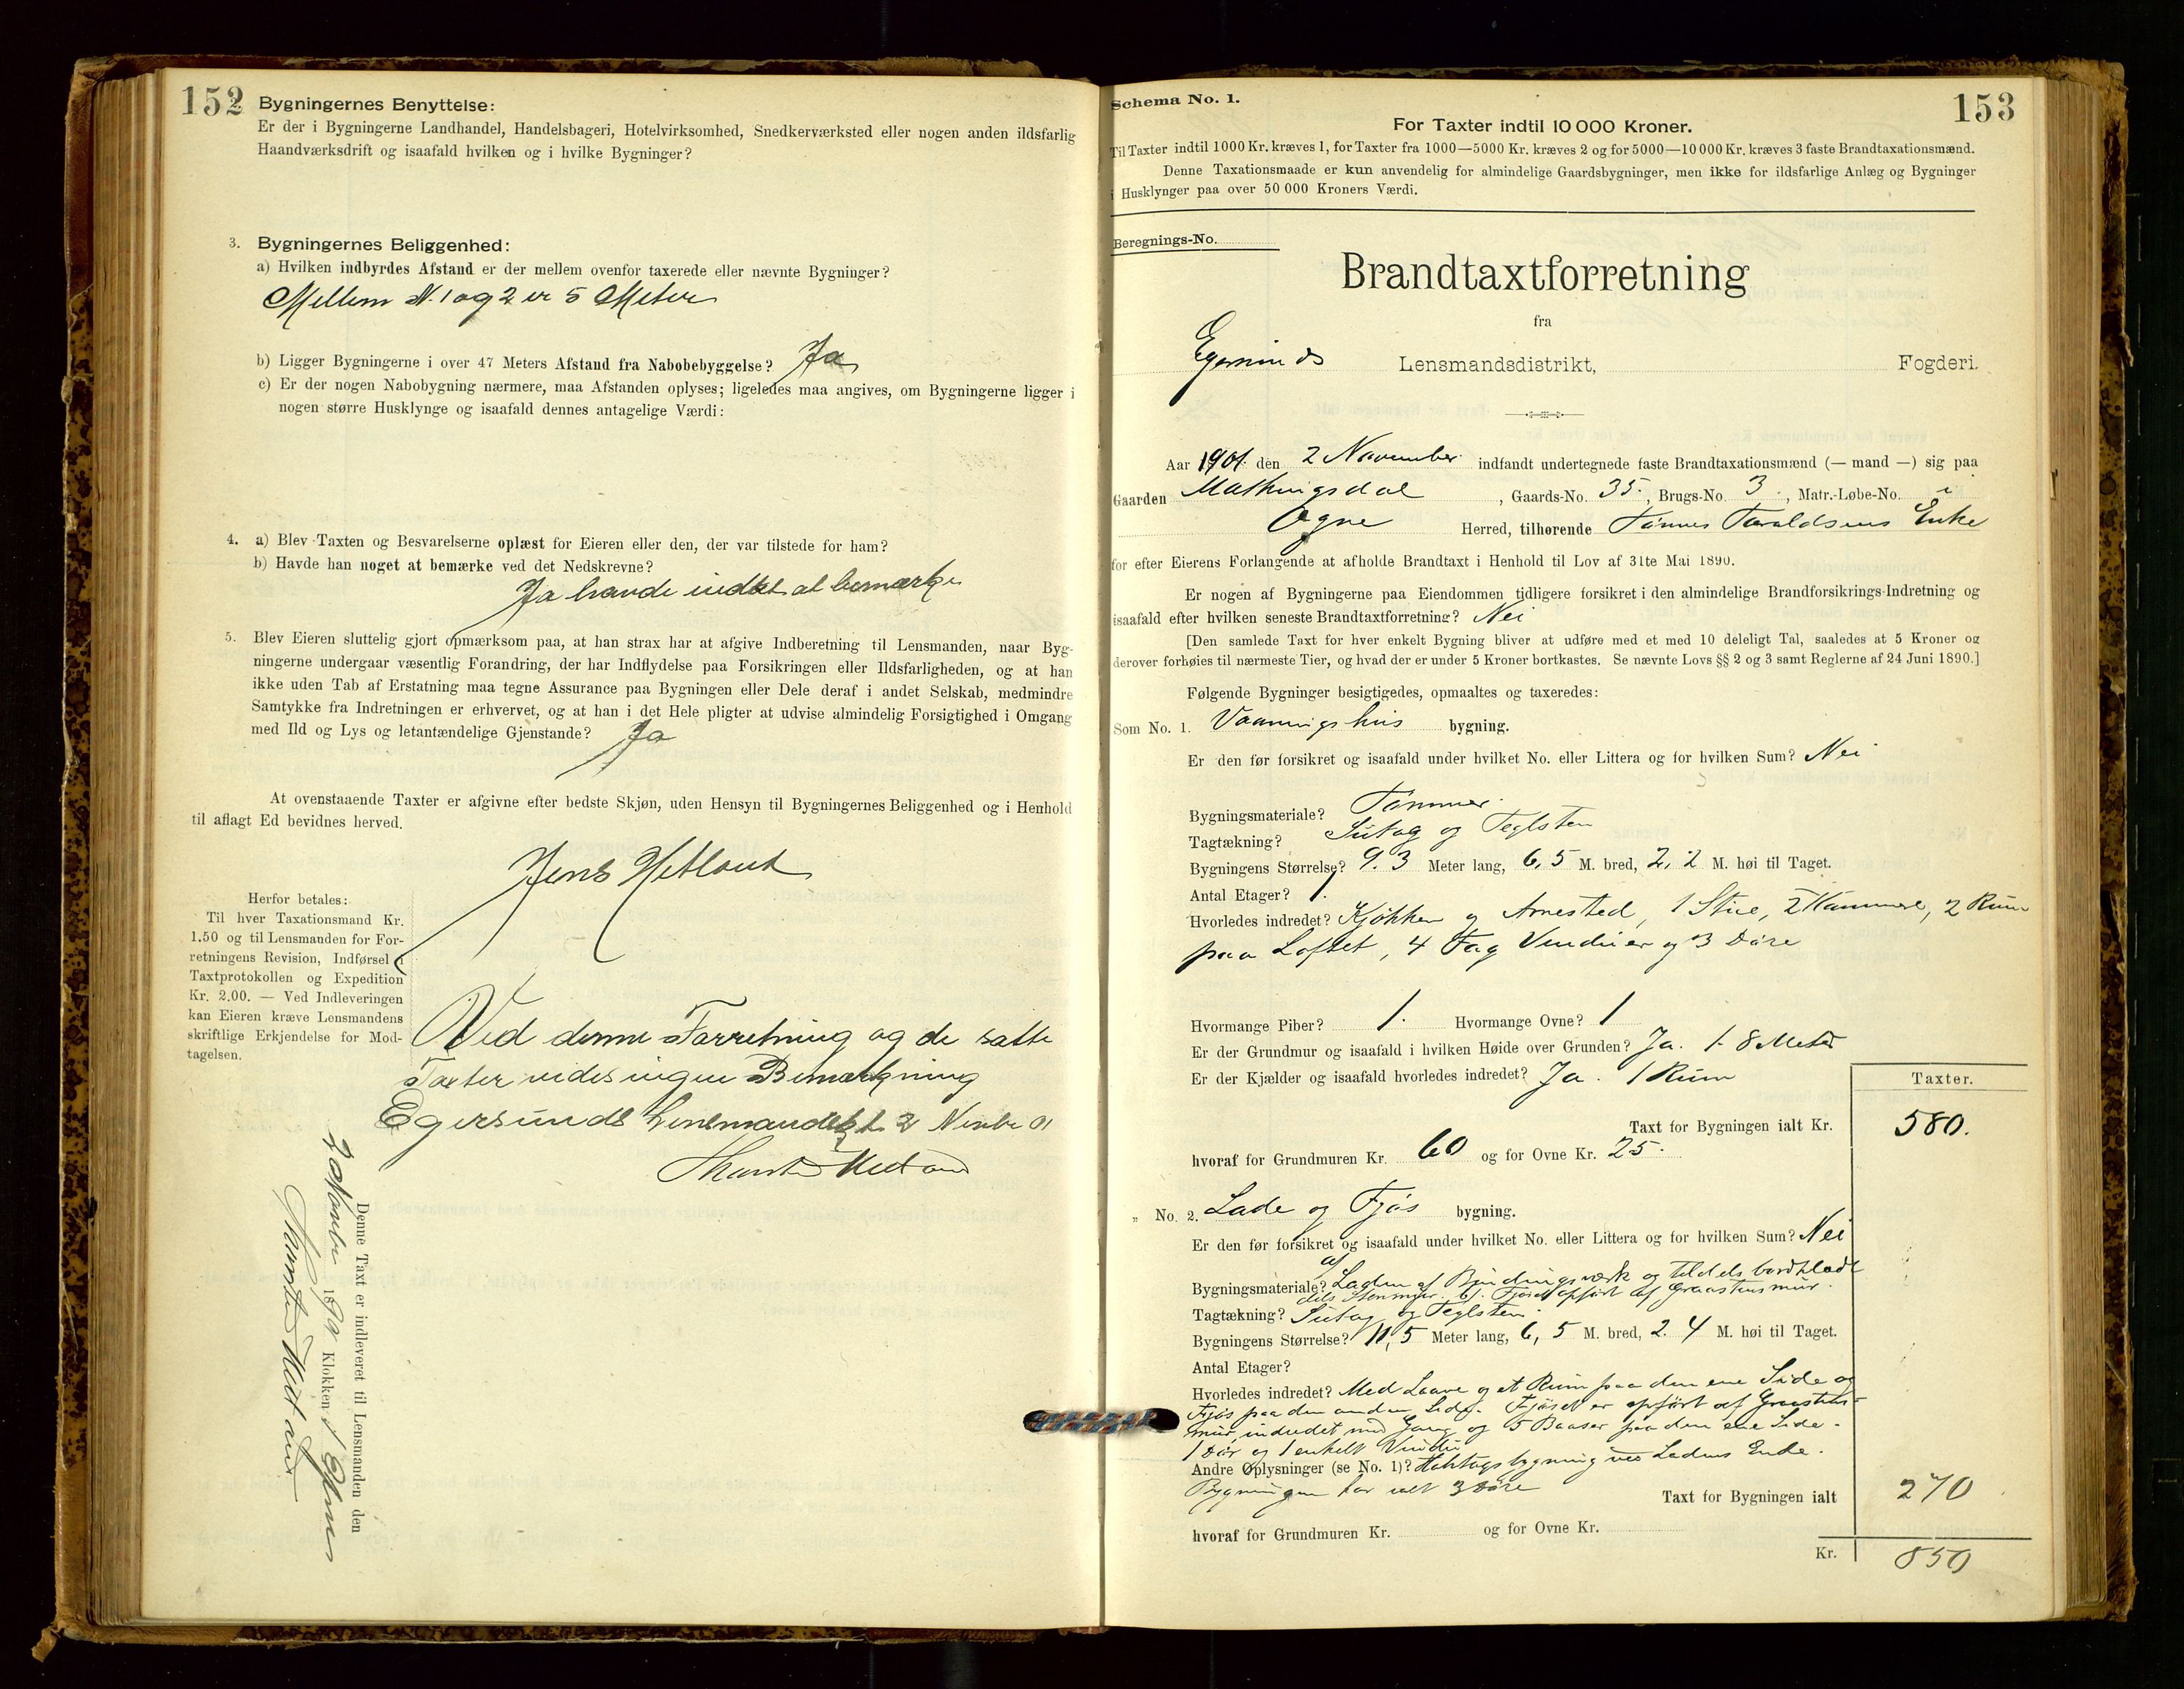 152
Bygningernes Benyttelse:
Er der i Bygningerne Landhandel, Handelsbageri, Hotelvirksomhed, Snedkerværksted eller nogen anden ildsfarlig
Haandværksdrift og isaafald hvilken og i hvilke Bygninger?
3. Bygningernes Beliggenhed:
a) Hvilken indbyrdes Afstand er der mellem ovenfor taxerede eller nævnte Bygninger?
Mellem N. 1 og 2 er 5 Meter
b) Ligger Bygningerne i over 47 Meters Afstand fra Nabobebyggelse? Ja
c) Er der nogen Nabobygning nærmere, maa Afstanden oplyses; ligeledes maa angives, om Bygningerne ligger i
nogen større Husklynge og isaafald dennes antagelige Værdi:
4. a) Blev Taxten og Besvarelserne oplæst for Eieren eller den, der var tilstede for ham?
b) Havde han noget at bemærke ved det Nedskrevne?
Ja havde indtet at bemærke
5. Blev Eieren sluttelig gjort opmærksom paa, at han strax har at afgive Indberetning til Lensmanden, naar Byg-
ningerne undergaar væsentlig Forandring, der har Indflydelse paa Forsikringen eller Ildsfarligheden, og at han
ikke uden Tab af Erstatning maa tegne Assurance paa Bygningen eller Dele deraf i andet Selskab, medmindre
Samtykke fra Indretningen er erhvervet, og at han i det Hele pligter at udvise almindelig Forsigtighed i Omgang
med Ild og Lys og letantændelige Gjenstande? Ja
At ovenstaaende Taxter er afgivne efter bedste Skjøn, uden Hensyn til Bygningernes Beliggenhed og i Henhold
til aflagt Ed bevidnes herved.
Jens Hetland
Herfor betales:
Til hver Taxationsmand Kr.
1.50 og til Lensmanden for For-
retningens Revision, Indførsel i
Taxtprotokollen og Expedition
Kr. 2.00. — Ved Indleveringen
kan Eieren kræve Lensmandens
skriftlige Erkjendelse for Mod-
tagelsen.
Ved denne Forretning og de satte
Taxter vides ingen Bemærkning
Egersunds Lensmandsbst. 2 Novbr 01
Denne Taxt er indleveret til Lensmanden den
2 Novbr 1901 Klokken 1 Efm
Schema No. 1.
153
For Taxter indtil 10 000 Kroner.
Til Taxter indtil 1000 Kr. kræves 1, for Taxter fra 1000—5000 Kr. kræves 2 og for 5000—10 000 Kr. kræves 3 faste Brandtaxationsmænd.
Denne Taxationsmaade er kun anvendelig for almindelige Gaardsbygninger, men ikke for ildsfarlige Anlæg og Bygninger
i Husklynger paa over 50 000 Kroners Værdi.
Beregnings-No.
Brandtaxtforretning
fra
Egersunds Lensmandsdistrikt, Fogderi.
Aar 1901 den 2 November indfandt undertegnede faste Brandtaxationsmænd (— mand —) sig paa
Gaarden Mathingsdal, Gaards-No. 35, Brugs-No. 3, Matr.-Løbe-No. i
Ogne Herred, tilhørende Tønnes Taraldsens Enke
for efter Eierens Forlangende at afholde Brandtaxt i Henhold til Lov af 31te Mai 1890.
Er nogen af Bygningerne paa Eiendommen tidligere forsikret i den almindelige Brandforsikrings-Indretning og
isaafald efter hvilken seneste Brandtaxtforretning? Nei
[Den samlede Taxt for hver enkelt Bygning bliver at udføre med et med 10 deleligt Tal, saaledes at 5 Kroner og
derover forhøies til nærmeste Tier, og hvad der er under 5 Kroner bortkastes. Se nævnte Lovs §§ 2 og 3 samt Reglerne af 24 Juni 1890.]
Følgende Bygninger besigtigedes, opmaaltes og taxeredes:
Som No. 1. Vaaningshus bygning.
Er den før forsikret og isaafald under hvilket No. eller Littera og for hvilken Sum? Nei
Bygningsmateriale? Tømmer
Tagtækning? Sutag og Teglsten
Bygningens Størrelse? 9.3 Meter lang, 6,5 M. bred, 2,2 M. høi til Taget.
Antal Etager? 1.
Hvorledes indredet? Kjøkken og Arnested, 1 Stue, 2 Kammere, 2 Rum
paa Loftet, 4 Fag Vinduer og 3 Døre
Hvormange Piber? 1. Hvormange Ovne? 1
Er der Grundmur og isaafald i hvilken Høide over Grunden? Ja. 1.8 Meter
Er der Kjælder og isaafald hvorledes indredet? Ja. 1 Rum
Taxter.
Taxt for Bygningen ialt Kr. 580.
hvoraf for Grundmuren Kr. 60 og for Ovne Kr. 25.
" No. 2. Lade og Fjøs bygning.
Er den før forsikret og isaafald under hvilket No. eller Littera og for hvilken Sum? Nei
Bygningsmateriale? Laden af Bindingsværk og tildels bordklædt
dels Stenmur. Fjøset opført af Graastensmur.
Tagtækning? Sutag og Teglsten
Bygningens Størrelse? 11,5 Meter lang, 6,5 M. bred, 2.4 M. høi til Taget.
Antal Etager?
Hvorledes indredet? Med Laave og et Rum paa den ene Side og
Fjøs paa den anden Side. Fjøset er opført af Graastens-
mur, indredet med Gang og 5 Baaser paa den ene Side.
1 Dør og 1 enkelt Vindu
Andre Oplysninger (se No. 1)? Halvtagsbygning ved Ladens Ende.
Bygningen har ialt 3 Døre
Taxt for Bygningen ialt 270
hvoraf for Grundmuren Kr. og for Ovne Kr.
Kr. 850